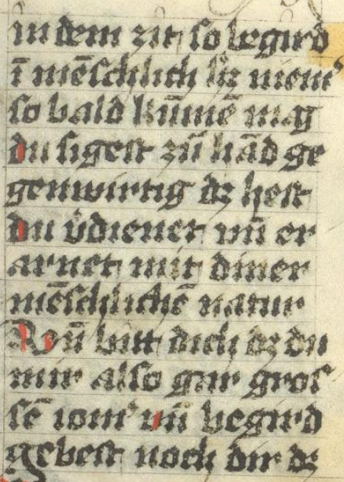 in dem zit so begird
ī mēschlich h͛z niem͛
so bald kūmē mag
du sigest zū hād ge
genwirtig dz hest
du v̄dienet vn̄ er
arnet mit diner
mēschlichē natur
Nū bitt dich dz du
mir also gar gros
sē iom͛ vn̄ begird
gebest noch dir dz